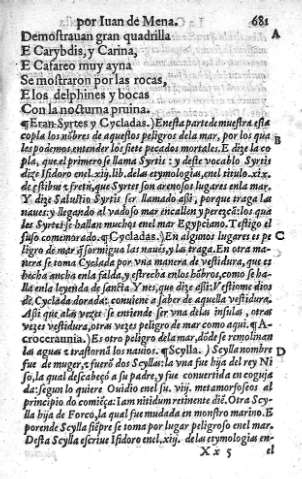 por Iuan de Mena. 681
Demostrauan gran quadrilla A
E Carybdis, y Carina,
E Cafareo muy ayna
Se mostraron por las rocas,
E los delphines y bocas
Con la nocturna pruina.
¶ Eran Syrtes y Cycladas.) En esta parte demuestra esta
copla los nõbres de aquestos peligros dela mar, por los qua B
les podemos entender los siete pecados mortales. E dize la co
pla, que el primero se llama Syrtis: y deste vocablo Syrtis
dize Isidoro enel .xiij. lib. dela etymologias, enel titulo .xix.
de estibus & fretis, que Syrtes son arenosos lugares enla mar.
Y dize Salustio Syrtis ser llamado assi, porque traga las
naues: y llegando al vadoso mar encallen y perezcã: los qua
les Syrtes se hallan muchos enel mar Egypciano. Testigo el
suso comemorado. ¶ Cycladas.) En algunos lugares es pe C
ligro de mar que sormigua las naues, y las traga. En otra ma
nera se toma Cyclada por vna manera de vestidura, que es
hecha ancha enla falda, y estrecha enlos hõbros, como se ha-
lla enla leyenda de sancta Ynes, que dize assi: Vestiome dios
de Cyclada dorada: conuiene a saber de aquella vestidura.
Assi que alas vezes se entiende ser vna delas insulas, otras
vezes vestidura, otras vezes peligro de mar como aqui. ¶ A-
crocceraunia.) Es otro peligro dela mar, dõde se remolinan
las aguas & trastornã los nauios. ¶ Scylla.) Scylla nombre D
fue de muger, & fuerõ dos Scyllas: la vna fue hija del rey Ni
so, la qual descabeçó a su padre, y fue conuertida en coguja
da: segun lo quiere Ouidio enel su .viij. metamorfoseos al
principio do comiẽça: Iam nitidum retinente diẽ. Otra Scy-
lla hija de Forco, la qual fue mudada en monstro marino. E
por ende Scylla siẽpre se toma por lugar peligroso enel mar.
Desta Scylla escriue Isidoro enel .xiij. delas etymologias en-
Xx 5 el